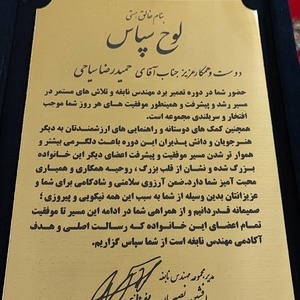 بنام خالق هستی
لوح سپاس
دوست و همکار عزیز جناب آقای حمیدرضا سیاحی
حضور شما در دوره تعمیر برد مهندس نابغه و تلاش های مستمر در
مسیر رشد و پیشرفت و همینطور موفقیت های هر روز شما موجب
افتخار و سربلندی مجموعه است.
همچنین کمک های دوستانه و راهنمایی های ارزشمندتان به دیگر
هنرجویان و دانش پذیران این دوره باعث دلگرمی بیشتر و
هموار تر شدن مسیر موفقیت و پیشرفت اعضای دیگر این خانواده
بزرگ شده و نشان از قلب بزرگ ، روحیه همکاری و همیاری
محبت آمیز شما دارد. ضمن آرزوی سلامتی و شادکامی برای شما و
عزیزانتان بدین وسیله از شما به سبب این همه نیکویی و پیروزی ؛
صمیمانه قدردانیم و از همراهی شما در ادامه این مسیر تا موفقیت
تمام اعضای این خانواده که رسالت اصلی و هدف
آکادمی مهندس نابغه است از شما سپاس گزاریم.
مدیر مجموعه مهندس نابغه